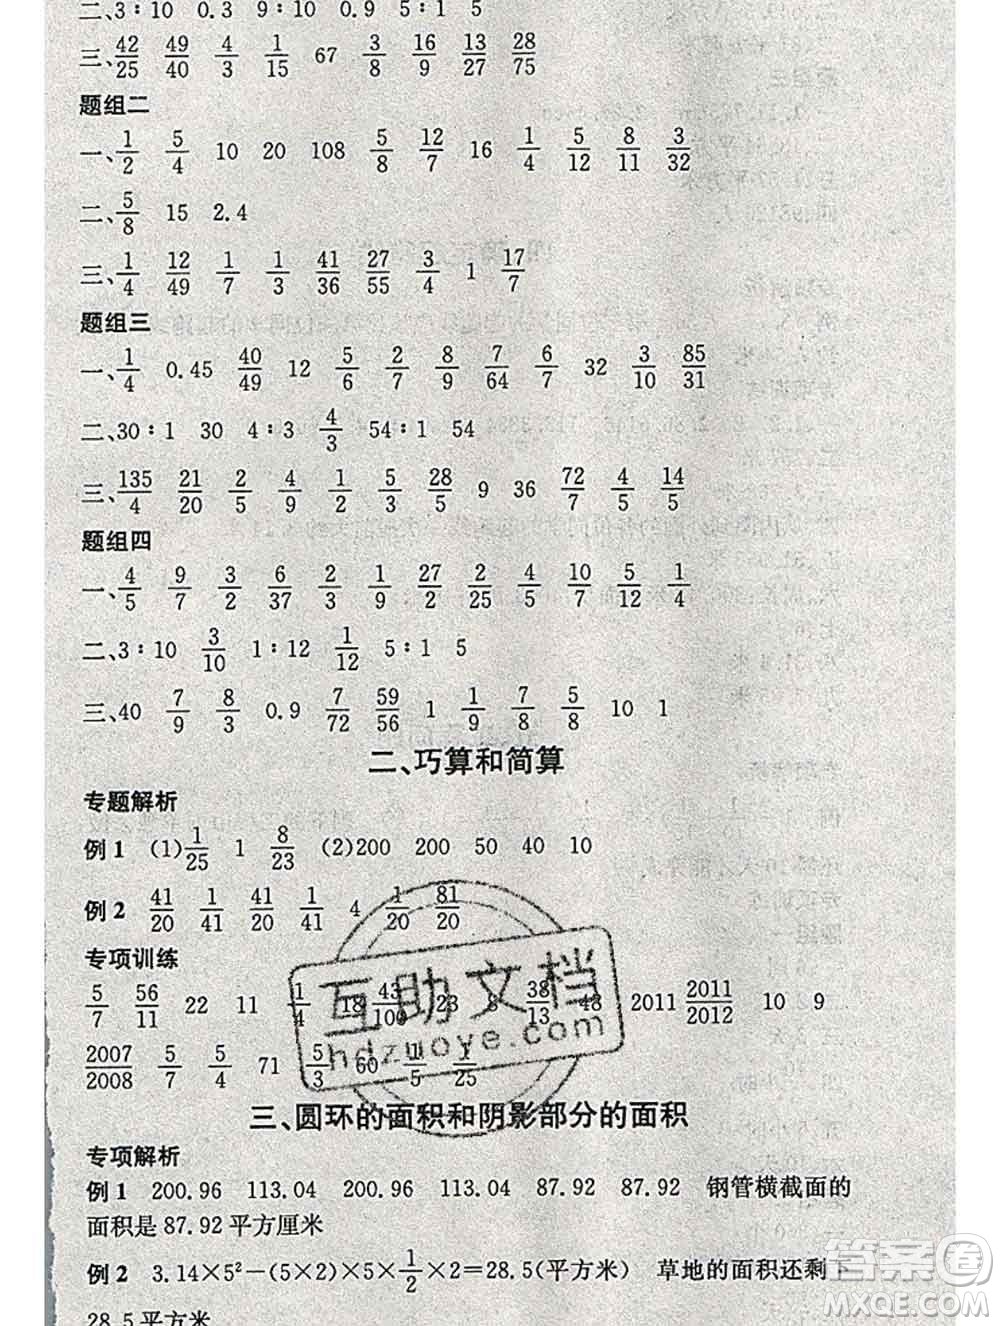 二、3∶10 0.3 9∶10 0.9 5∶1 5
三、42/25 49/40 4/3 1/15 67 3/8 16/9 13/27 28/75
题组二
一、1/2 5/4 10 20 108 5/8 12/7 16 1/4 5/12 8/11 3/32
二、5/8 15 2.4
三、1/4 12/49 1/7 1/3 41/36 27/55 3/4 1 17/7
题组三
一、1/4 0.45 40/49 12 5/6 2/7 4/9 7/64 6/7 32 3/10 85/31
二、30∶1 30 4∶3 4/3 54∶1 54
三、135/4 21/20 2/5 4/9 1/2 5/3 28/5 9 36 72/7 4/5 14/5
题组四
一、4/5 9/7 3/2 6/37 2/3 1/2 27/2 2/25 4/5 10/7 5/12 1/4
二、3∶10 3/10 1∶12 1/12 5∶1 5
三、40 7/9 8/3 0.9 7/72 59/56 1 1/9 7/8 5/8 10 1
二、巧算和简算
专题解析
例1 (1)1/25 1 8/23 (2)200 200 50 40 10
例2 41/20 1/41 41/20 1/41 4 1/20 81/20
专项训练
5/7 56/11 22 11 1/4 18 43/100 23 8 38/13 48 2011 2011/2012 10 9
2007/2008 5/7 5/4 71 5/3 60 11/5 1/25
互助文档
hdzuoye.com
三、圆环的面积和阴影部分的面积
专项解析
例1 200.96 113.04 200.96 113.04 87.92 87.92 钢管横截面的
面积是87.92平方厘米
例2 3.14×5²－(5×2)×(5×2)×1/2×2＝28.5(平方米) 草地的面积还剩下
28.5平方米
答案圈
MXQE.COM